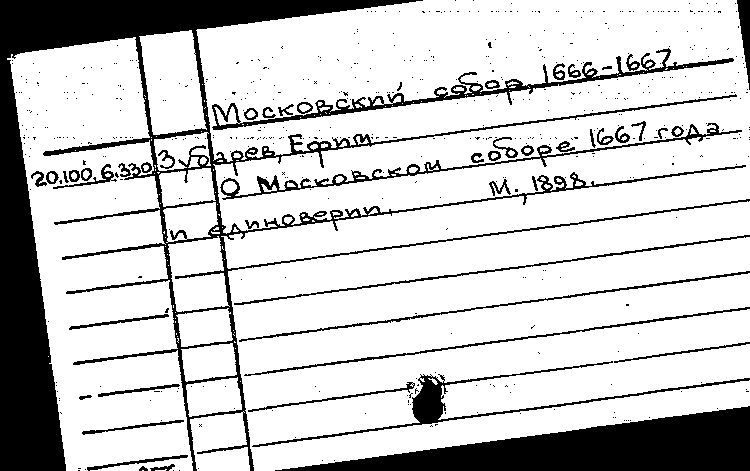 Московский собор, 1666-1667.
20.100.6.330 Зубарев, Ефим
О Московском соборе 1667 года
и единоверии. М., 1898.